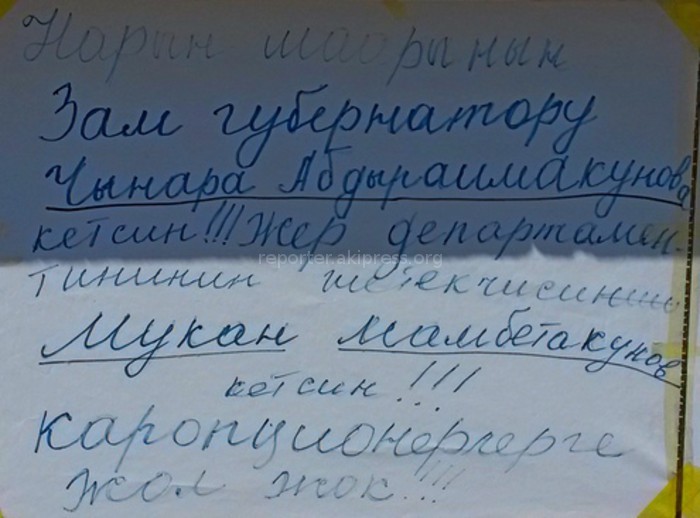 Нарын шаарынын
Зам губернатору
Чынара Абдыраимакунова
кетсин!!! Жер департамен-
reporter.akipress.org
тининин
Мукан Мамбетакунов
кетсин!!!
каропционерлерге
жол жок!!!